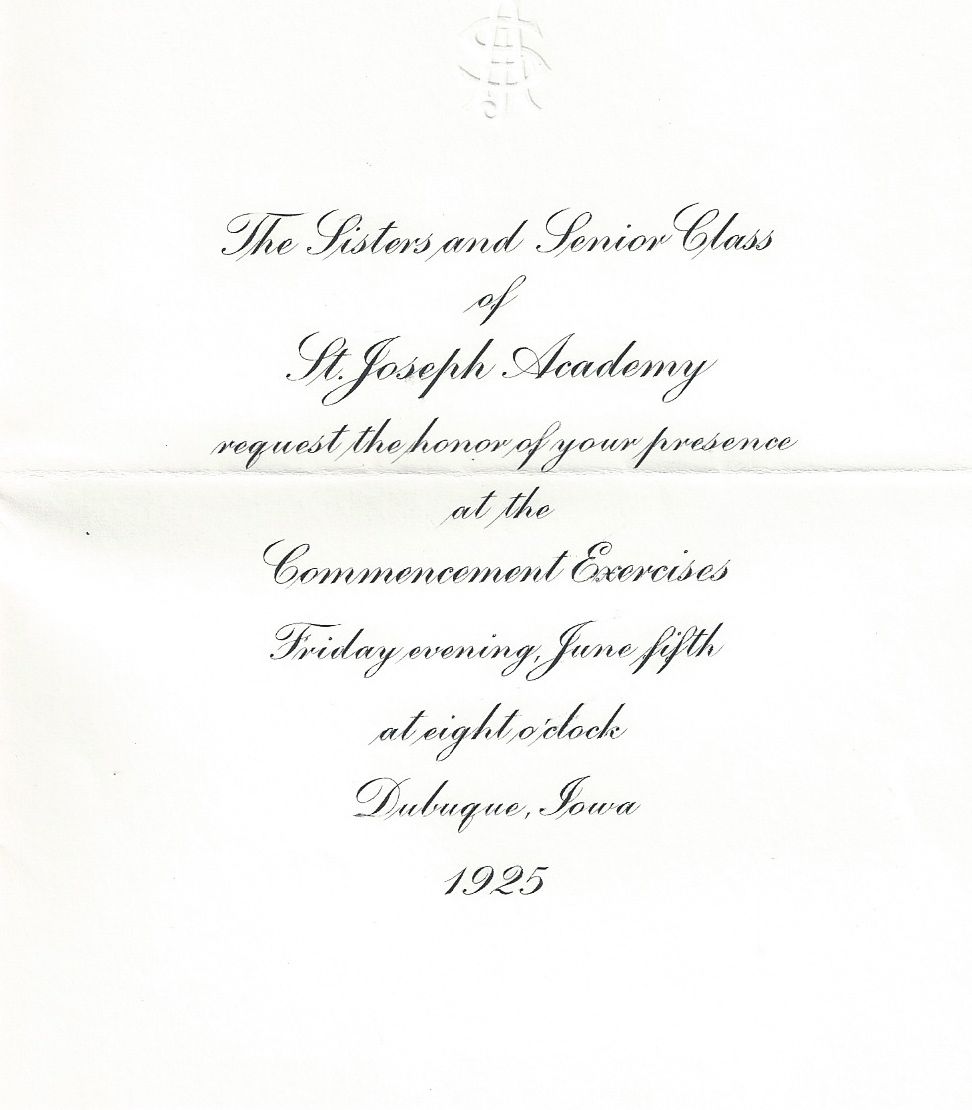 The Sisters and Senior Class
of
St. Joseph Academy
request the honor of your presence
at the
Commencement Exercises
Friday evening, June fifth
at eight o'clock
Dubuque, Iowa
1925